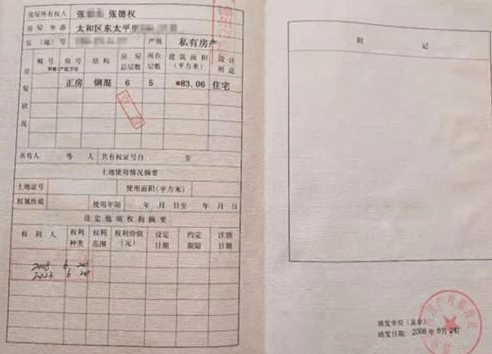 房屋所有权人 张 张德权
房屋坐落 太和区东太平里
丘（地）号 产别 私有房产
房屋状况
幢号 房号 结构 房屋总层数 所在层数 建筑面积（平方米） 设计用途
正房 钢混 6 5 *83.06 住宅
共有人 等 人 共有权证号自 至
土地使用情况摘要
土地证号 使用面积（平方米）
权属性质 使用年限 年 月 日至 年 月 日
设定他项权利摘要
权利人 权利种类 权利范围 权利价值（元） 设定日期 约定期限 注销日期
附记
填发单位（盖章）
填发日期：2008年6月 日